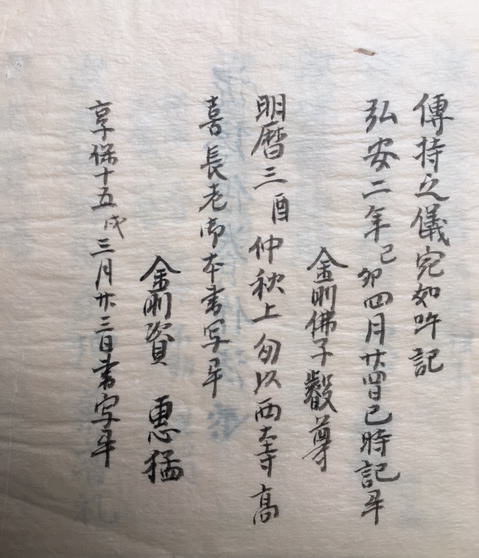 傳持之儀宛如昨記
弘安二年己卯四月廿四日巳時記畢
金剛佛子叡尊
明曆三酉仲秋上旬以西大寺高
喜長老御本書写畢
金剛資 惠猛
享保十五戌三月廿三日書写畢